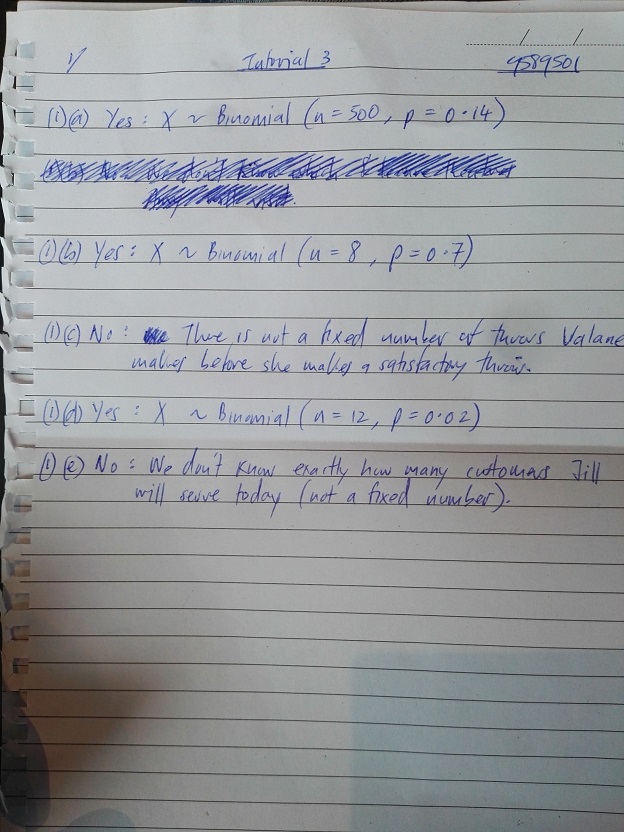 1/ Tutorial 3 / /
9589501
(1)(a) Yes : X ~ Binomial (n = 500, p = 0.14)
(1)(b) Yes : X ~ Binomial (n = 8, p = 0.7)
(1)(c) No : There is not a fixed number of throws Valane
makes before she makes a satisfactory throw.
(1)(d) Yes : X ~ Binomial (n = 12, p = 0.02)
(1)(e) No : We don't know exactly how many customers Jill
will serve today (not a fixed number).